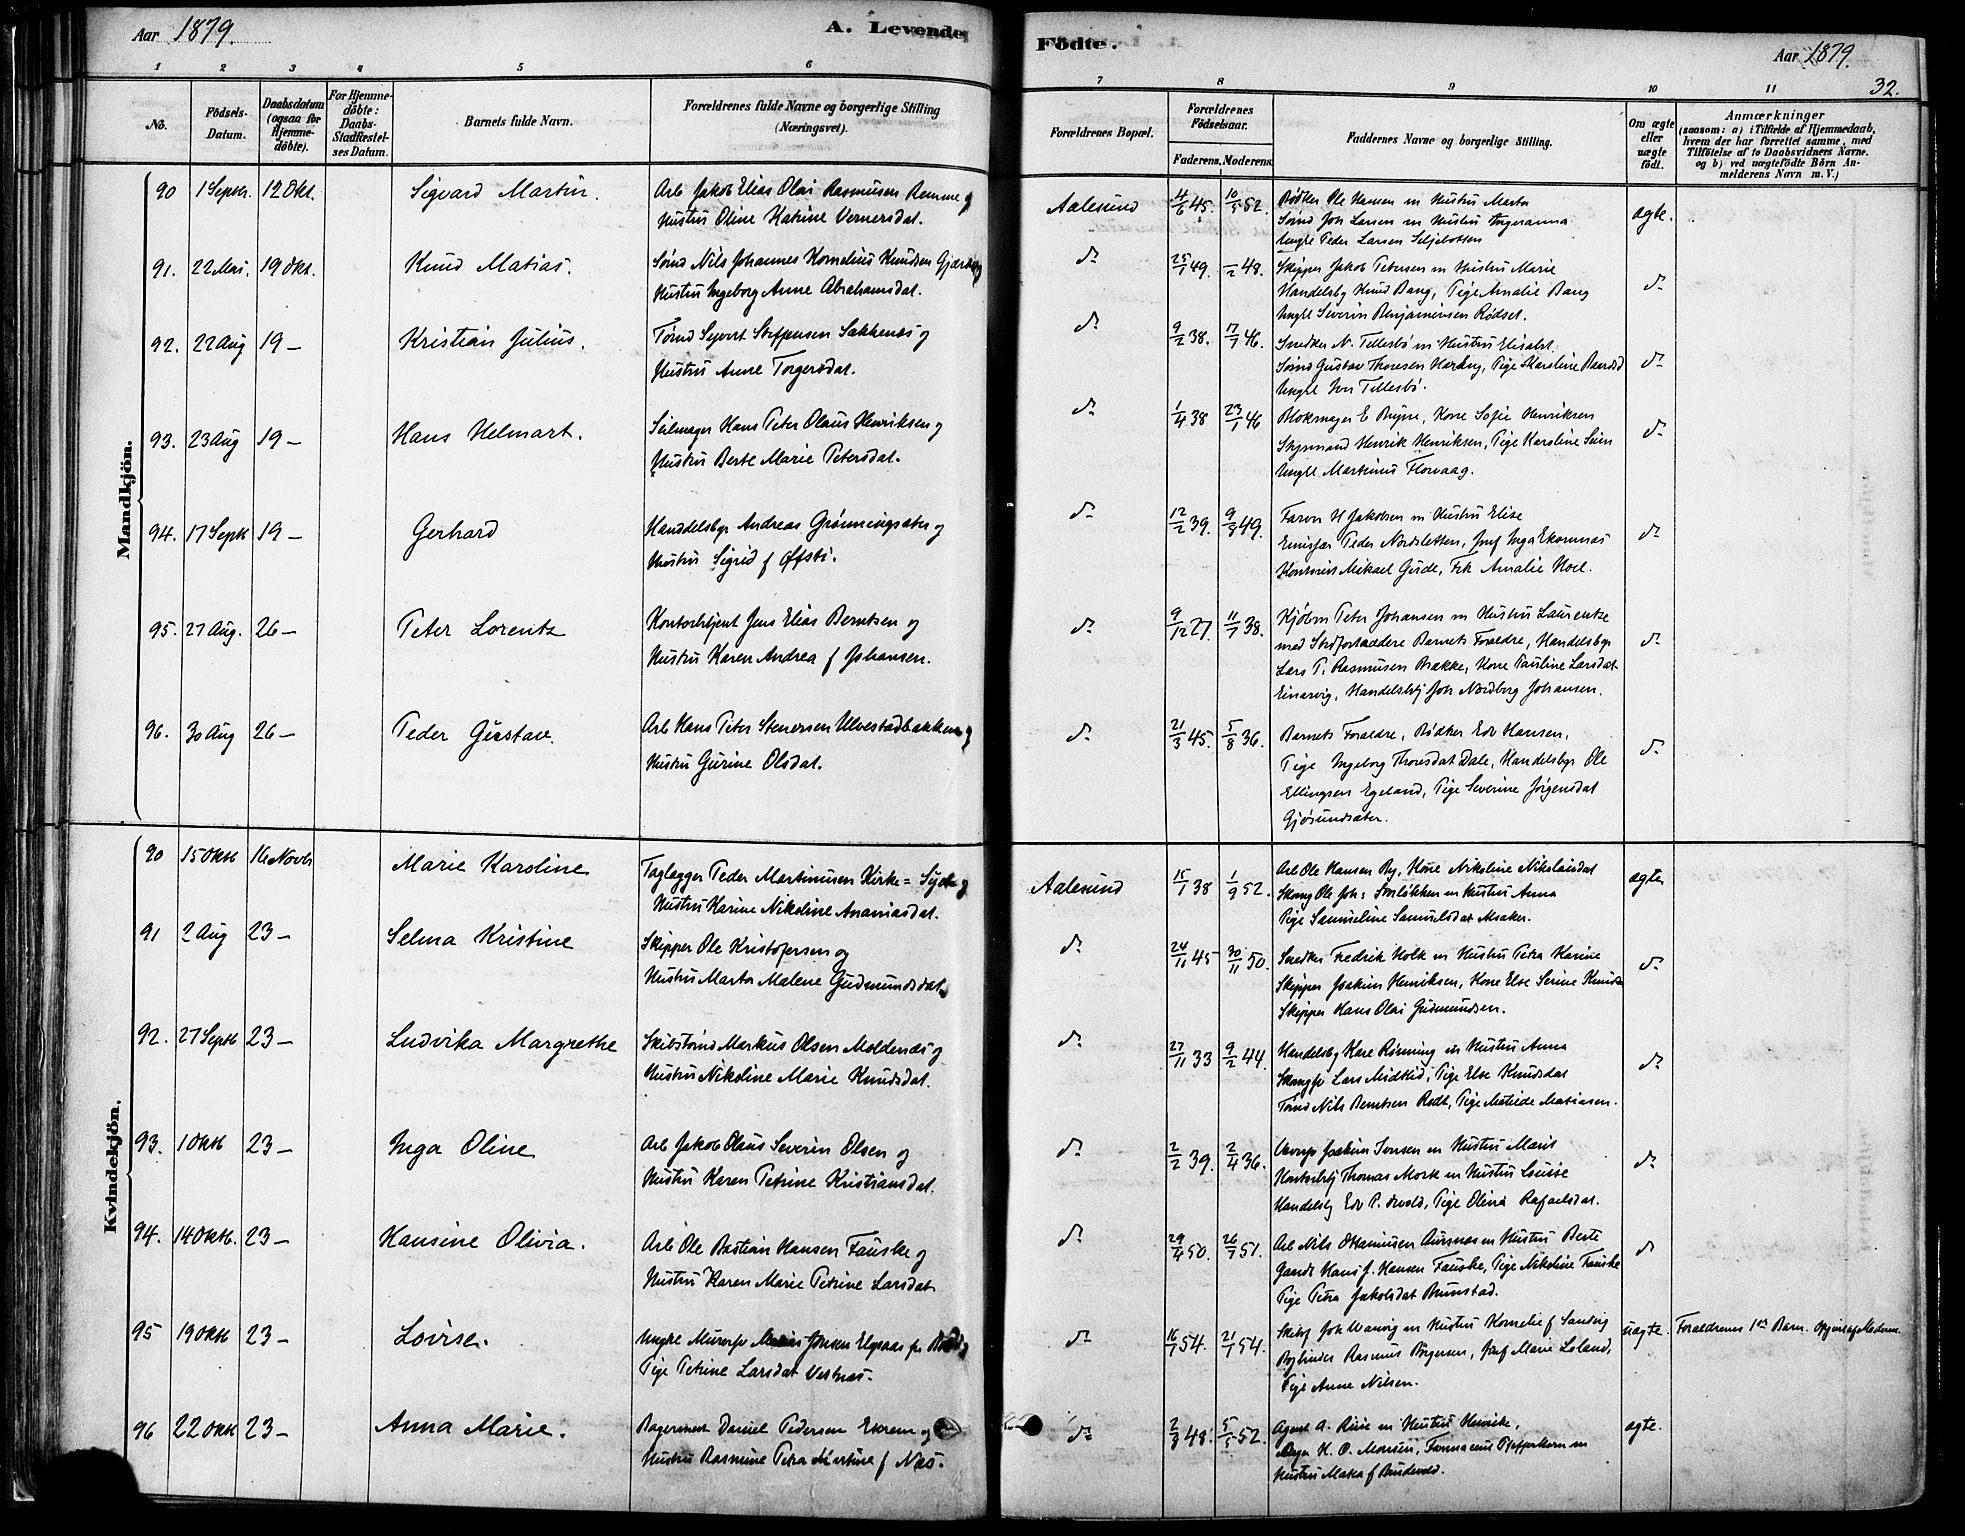 Aar 1879.
A. Levende
Födte.
Aar 1879.
32.
1 2 3 4 5 6
7 8 9 10 11
No.
Födsels-Datum.
Daabsdatum (ogsaa for Hjemmedöbte).
For Hjemmedöbte: Daabs-Stadfæstelses Datum.
Barnets fulde Navn.
Forældrenes fulde Navne og borgerlige Stilling (Næringsvei).
Forældrenes Bopæl.
Forældrenes Födselsaar.
Faderens. Moderens.
Faddernes Navne og borgerlige Stilling.
Om ægte eller uægte födt.
Anmærkninger
(saasom: a) i Tilfælde af Hjemmedaab, hvem der har forrettet samme, med Tilföielse af to Daabsvidners Navne. og b) ved uægtefödte Börn Anmelderens Navn m. V.)
Mandkjön.
90 1 Septr. 12 Okt. Sigvard Martin. Arb Jakob Elias Olai Rasmusen Remme og
Hustru Oline Katrine Vernersdat.
Aalesund 4/6 45. 10/5 52. Bødker Ole Hansen m Hustru Marta
Joh Larsen m Hustru Ingeranna
Ungkl Peder Larsen Seljebotten
ægte.
91. 22 Mai. 19 Okt. Knud Matias. Nils Johannes Kornelius Knudsen
Hustru Ingeborg Anne Abrahamsdat.
do 25/1 49. /2 48. Skipper Jakob Petersen m Hustru Marie
Handelsby Knud Bang, Pige Amalie Bang
Ungkl Severin Benjaminsen Rødset.
do
92. 22 Aug 19 — Kristian Julius. Tømd Syvert Steffensen Sakkenæs og
Hustru Anne Torgersdat.
do 9/2 38. 17/7 46. Snedker N. Tellesbø m Hustru Elisabt.
Gustav Thoresen Pige Karoline
Ungkl Iver Tellesbø.
do
93. 23 Aug 19 — Hans Helmart. Seilmager Hans Peter Olaus Henriksen og
Hustru Berte Marie Petersdat.
do 1/4 38 23/1 46 Blokmager E Kone Sofie Henriksen
Henrik Henriksen, Pige Karoline
Ungkl Martinus Flovaag.
do
94. 17 Septb 19 — Gerhard Handelsbgr Andreas Grønningsæter og
Hustru Sigrid f Øfsti.
do 12/2 39. 9/8 49. Farver H Jakobsen m Hustru Elise
Peder Nordsletten, Jmf Inga Ekornnæs
Kontorist Mikael Gurde, Frk Amalie
do
95. 27 Aug. 26 — Peter Lorentz Kontorbtjent Jens Elias Berntsen og
Hustru Karen Andrea f Johansen.
do 9/12 27. 11/7 38. Kjøbm Peter Johansen m Hustru Laurentze
med Stedfortrædere Barnets Foreldre, Handelsbgr
Lars P. Rasmusen Brække, Kone Pauline Larsdat
Einarvig, Handelsbtj Joh Nordborg Johansen.
do
96. 30 Aug 26 — Peder Gustav. Arb Hans Peter Stenersen Ulvestadbakken og
Hustru Gurine Olsdat.
do 21/3 45. 5/8 36. Barnets Foreldre, Bødker Edv Hansen,
Pige Ingeborg Thoresdat Dale, Handelsbgr Ole
Ellingsen Egeland, Pige Severine Jørgensdat
Gjøsundsæter.
do
Kvindekjön.
90 15 Oktb 16 Novbr Marie Karoline Taglægger Peder Martinusen Kirke=
Hustru Karine Nikoline Ananiasdat.
Aalesund 15/1 38 1/9 52. Arb Ole Hansen By, Kone Nikoline Nikolaidat
Ole Joh: m Hustru Anna
Pige Samueline Samuelsdat Alsaker.
ægte
91 2 Aug 23 — Selma Kristine Skipper Ole Kristofersen og
Hustru Marta Malene Gudmundsdat.
do 24/11 45 30/11 50. Snedker Fredrik Holk m Hustru Petra Karine
Skipper Joakim Henriksen, Kone Else Serine
Skipper Hans Olai Gudmundsen.
do
92. 27 Septb 23 — Ludvika Margrethe Skibstømd Markus Olsen Moldenæs og
Hustru Nikoline Marie Knudsdat.
do 27/11 33 9/2 44. Handelsby Kare Rønning m Hustru Anna
Lars Midtlid, Pige Else Knudsdat
Tømd Nils Berntsen Rødt, Pige Matilde Matiasen.
do
93. 1 Oktb 23 — Inga Oline Arb Jakob Olaus Severin Olsen og
Hustru Karen Petrine Kristiansdat.
do 2/2 39. 2/4 36. Joakim Jensen m Hustru Marit
Kontorbtj Thomas Mork m Hustru Louise
Handelsbtj Edv P. Pige Olina Rafaelsdat.
do
94. 14 Oktb. 23 — Hansine Olivia. Arb Ole Bastian Hansen Fauske og
Hustru Karen Marie Petrine Larsdat
do 29/4 50. 26/7 51. Arb Nils Rasmusen Aursnæs m Hustru Berte
Gaardb Hans J. Hansen Fauske, Pige Nikoline Fauske
Pige Petra Jakobsdat Brunstad.
do
95 19 Oktb 23 — Lovise. Ungkl Murersv Jonsen Elgsaas fr Bodø
Pige Petrine Larsdat Vestnæs.
do 16/1 54. 21/1 54. Joh m Hustru Kornelie f Sandvig
Bogbinder Rasmus Børgersen, Jmf Marie Loland,
Pige Anne Nilsen.
uægte. Foreldrenes 1ste Barn. Opgivet af Moderen.
96 22 Oktb 23 — Anna Marie. Bagermest Daniel Pedersen Ekrem og
Hustru Rasmine Petra Martine f Næs.
do 2/8 48. 5/5 52. Agent A. m Hustru Henrikke,
Bager H. O. Monsen, Farmaceut Pfefferkorn m
Hustru f Brudevold.
ægte.